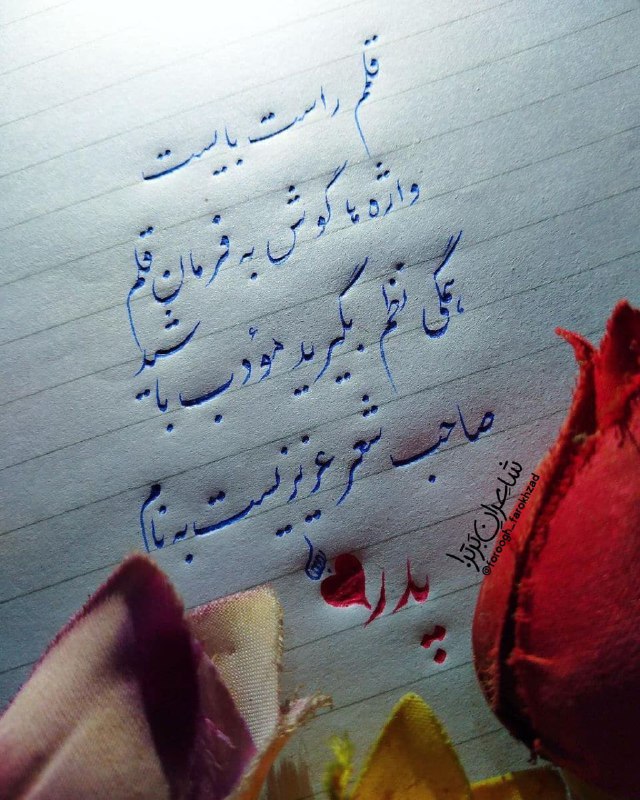 قلمم راست بایست
واژه ها گوش به فرمان قلم
همگی نظم بگیرید مؤدب باشید
صاحب شعر عزیزیست به نام
پدر
شاعران برتر!
@foroogh_farokhzad